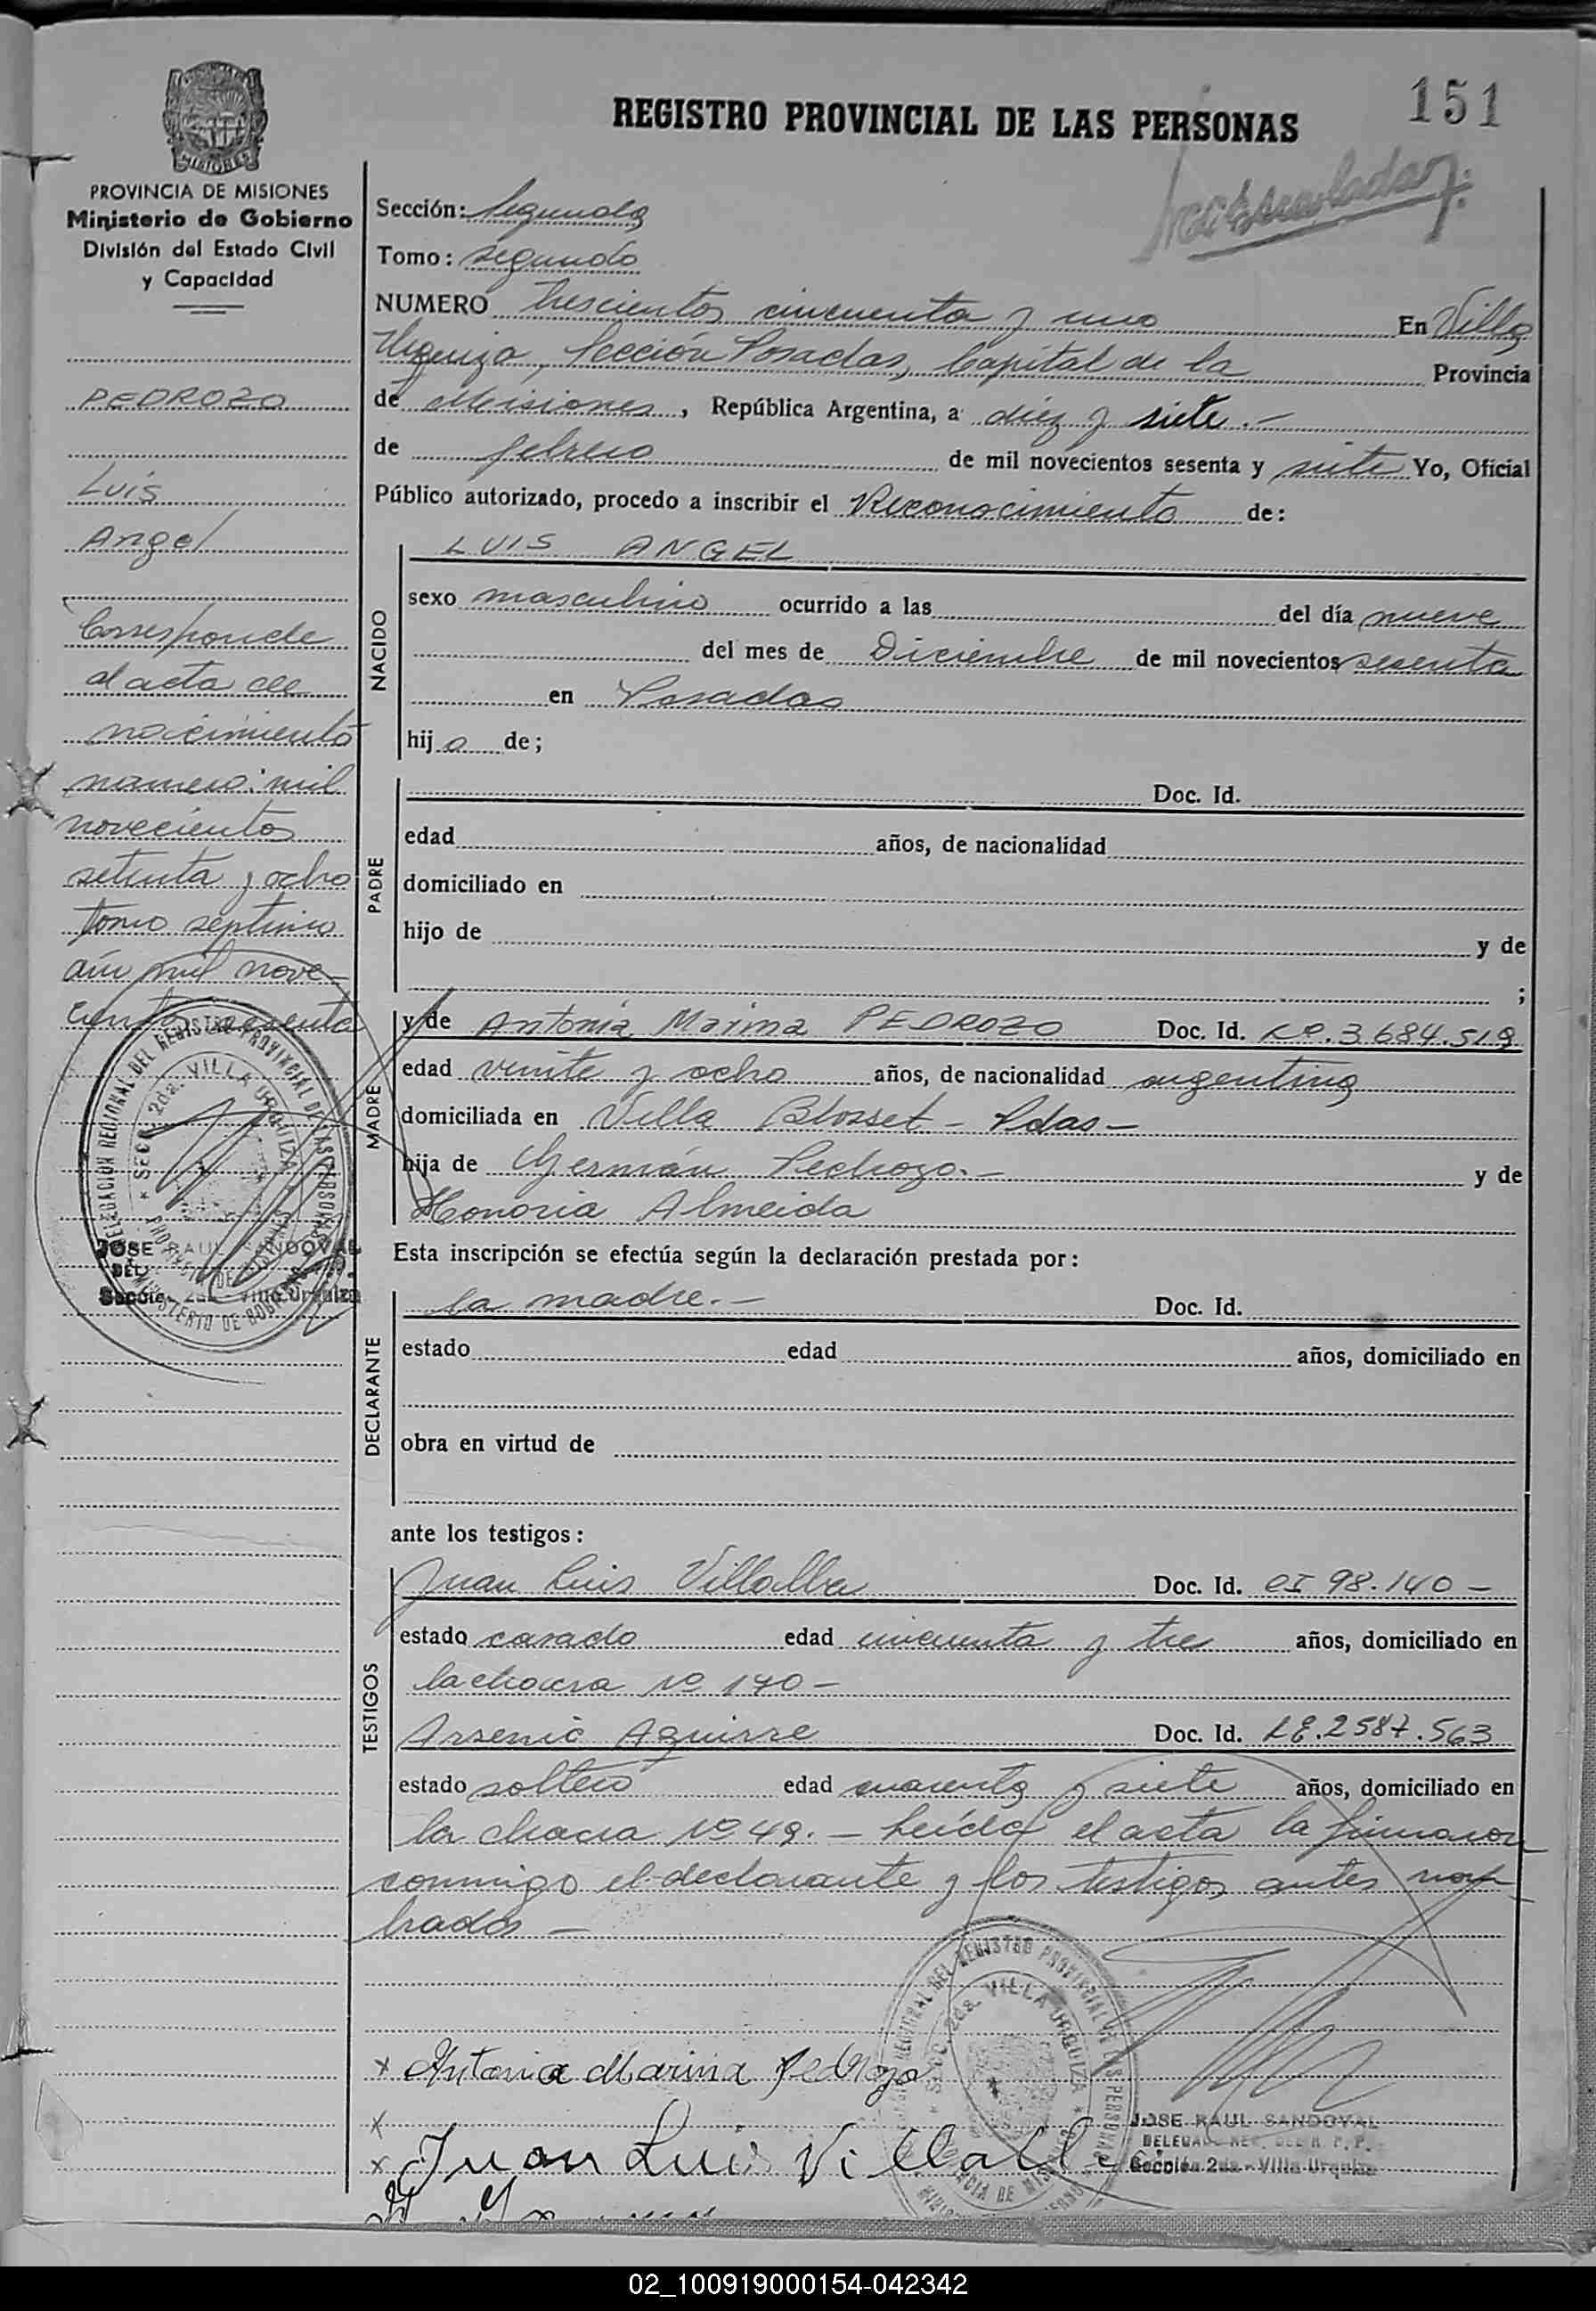 151
REGISTRO PROVINCIAL DE LAS PERSONAS
MISIONES
PROVINCIA DE MISIONES
Ministerio de Gobierno
División del Estado Civil
y Capacidad
PEDROZO
Luis
Angel
Corresponde
al acta de
nacimiento
número: mil
novecientos
setenta y ocho
tomo septimo
mil nove-
cientos sesenta
DELEGACION REGIONAL DEL REGISTRO PROVINCIAL DE LAS PERSONAS
* SECC. 2da. VILLA URQUIZA *
MINISTERIO DE GOBIERNO
JOSE RAUL SANDOVAL
Sección 2da - Villa Urquiza
Sección: Segunda
Tomo: segundo
NUMERO trescientos cincuenta y uno En Villa
Urquiza, Sección Posadas, Capital de la Provincia
de Misiones, República Argentina, a diez y siete.-
de febrero de mil novecientos sesenta y siete Yo, Oficial
Público autorizado, procedo a inscribir el Reconocimiento de:
NACIDO
LUIS ANGEL
sexo masculino ocurrido a las del día nueve
del mes de Diciembre de mil novecientos sesenta
en Posadas
hij o de;
PADRE
Doc. Id.
edad años, de nacionalidad
domiciliado en
hijo de y de
;
MADRE
y de Antonia Marina PEDROZO Doc. Id. 3.684.519
edad veinte y ocho años, de nacionalidad argentina
domiciliada en Villa Blosset - Pdas-
hija de Germán Pedrozo.- y de
Honoria Almeida
Esta inscripción se efectúa según la declaración prestada por:
DECLARANTE
la madre.- Doc. Id.
estado edad años, domiciliado en
obra en virtud de
ante los testigos:
TESTIGOS
Juan Luis Villalba Doc. Id. CI 98.140 -
estado casado edad cincuenta y tre años, domiciliado en
la chacra Nº 140-
Arsenio Aguirre Doc. Id. LE.2587.563
estado soltero edad cuarenta y siete años, domiciliado en
la chacra Nº 49.- Leída el acta la firmaron
conmigo el declarante y los testigos antes nom-
brados -
x Antonia Marina Pedrozo
x
x Juan Luis Villalba
SECC. 2da. VILLA URQUIZA
JOSE RAUL SANDOVAL
DELEGADO REG. DEL R. P. P.
Sección 2da - Villa Urquiza
02_100919000154-042342